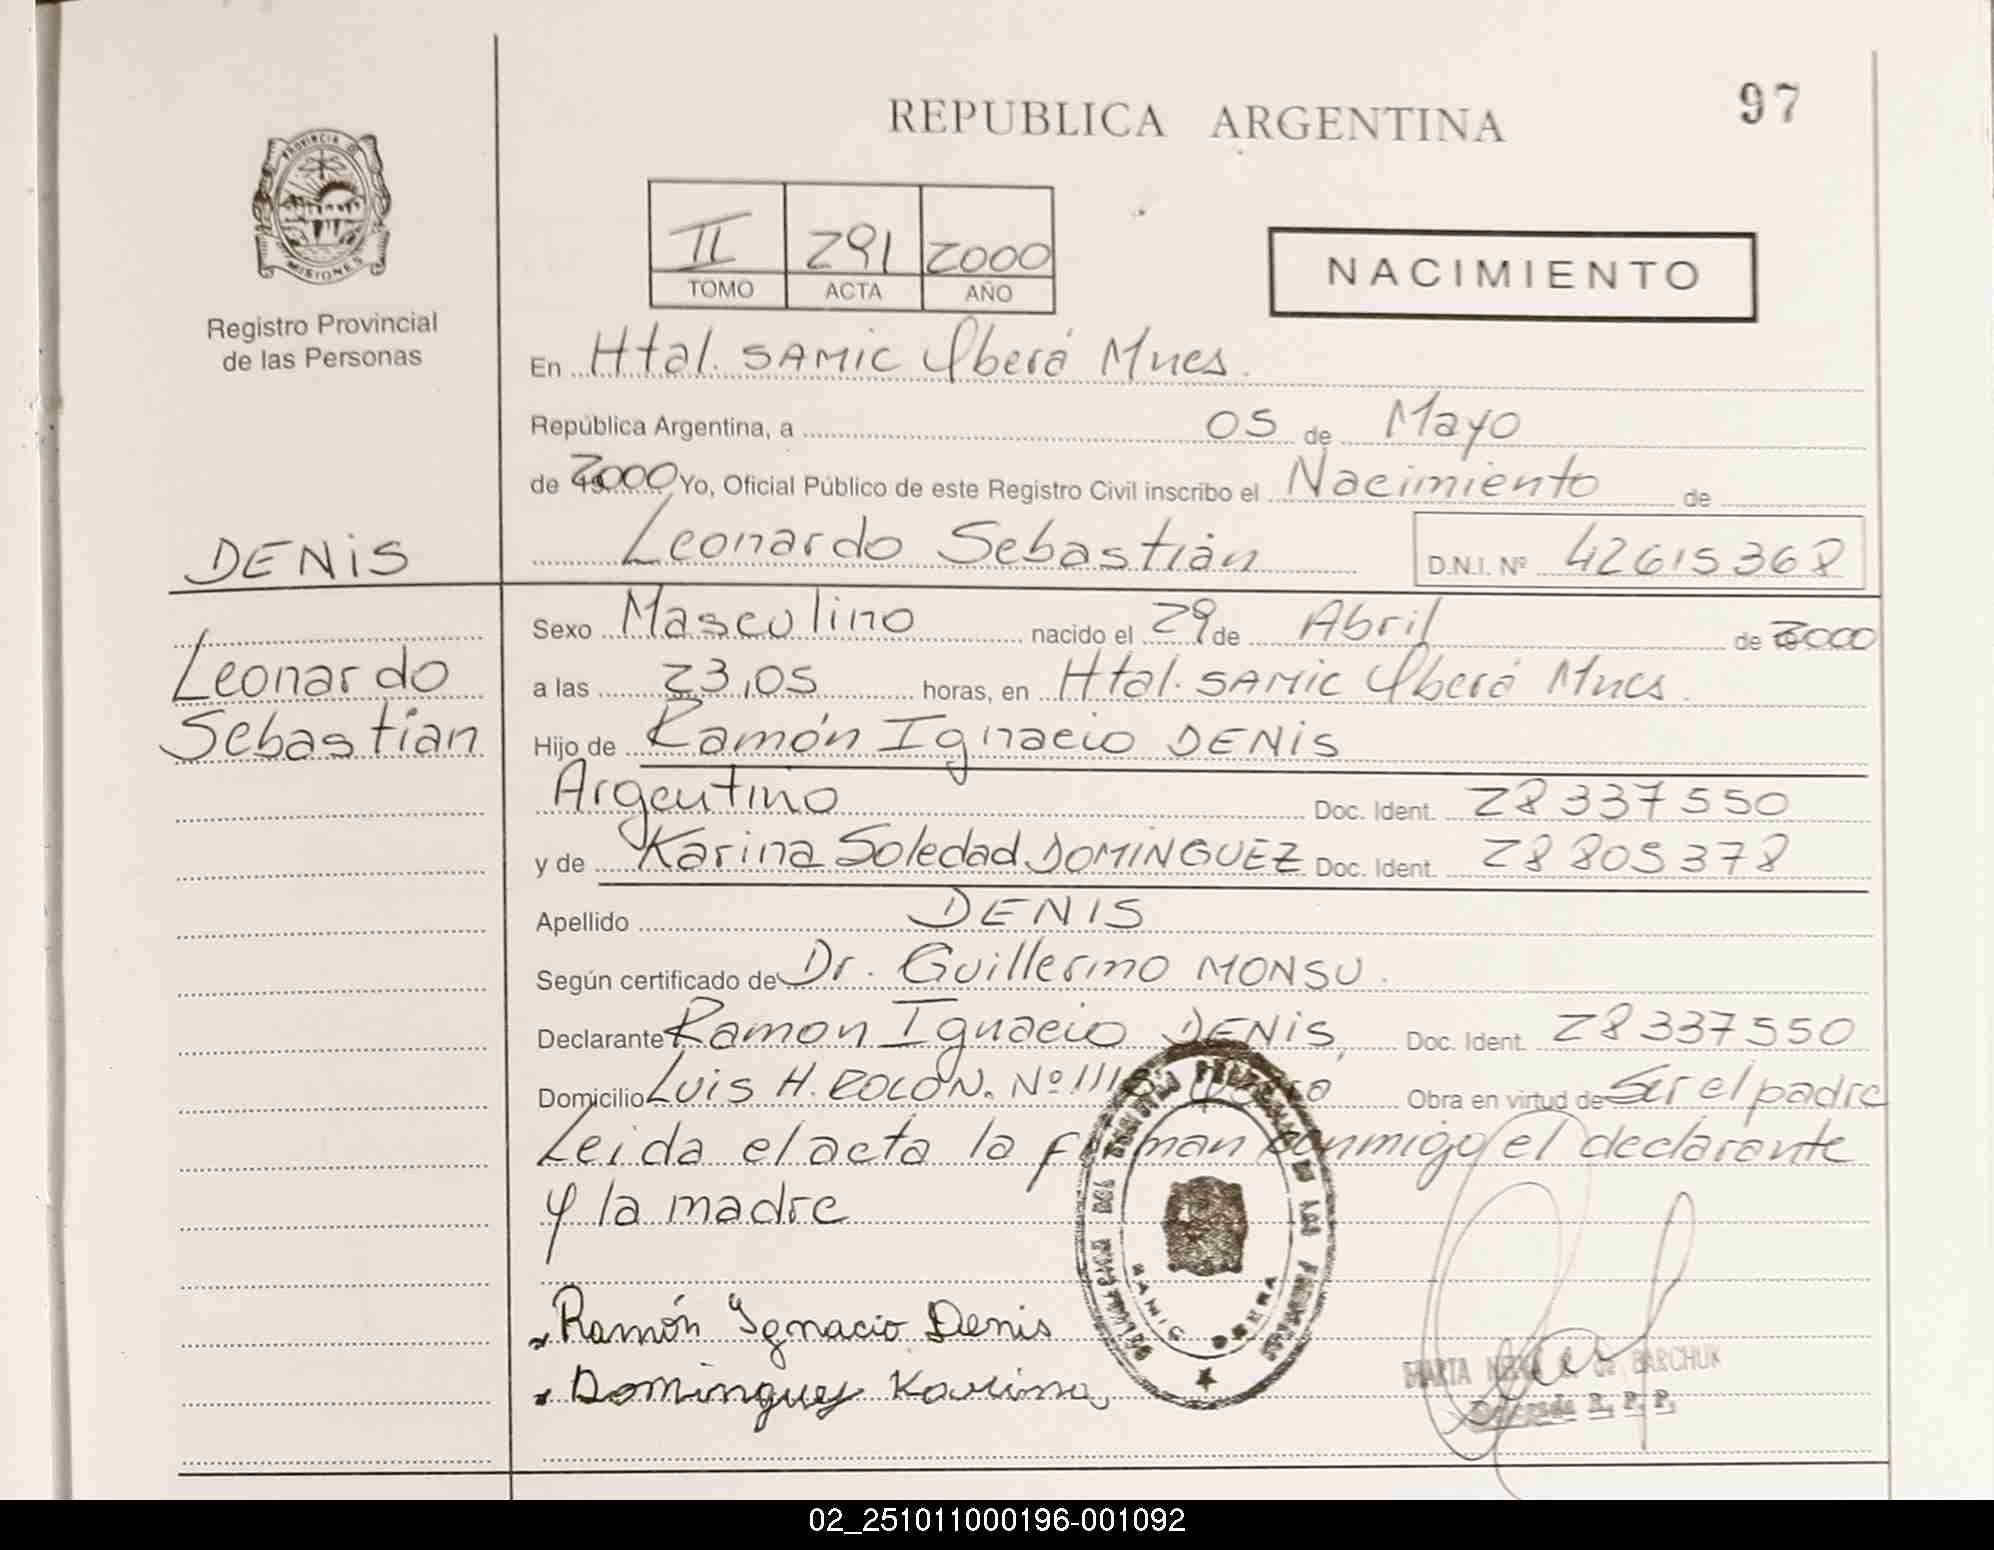 REPUBLICA ARGENTINA
97
PROVINCIA DE
MISIONES
Registro Provincial
de las Personas
II 291 2000
TOMO ACTA AÑO
NACIMIENTO
En Htal. SAMIC Yberá Mnes.
República Argentina, a 05 de Mayo
de 2000 Yo, Oficial Público de este Registro Civil inscribo el Nacimiento de
Leonardo Sebastián D.N.I. Nº 42615368
DENIS
Leonardo
Sebastián
Sexo Masculino nacido el 29 de Abril de 2000
a las 23,05 horas, en Htal. SAMIC Yberá Mnes.
Hijo de Ramón Ignacio DENIS
Argentino Doc. Ident. 28337550
y de Karina Soledad DOMINGUEZ Doc. Ident. 28805378
Apellido DENIS
Según certificado de Dr. Guillermo MONSU.
Declarante Ramon Ignacio DENIS, Doc. Ident. 28337550
Domicilio Luis H. ROLÓN. Nº Obra en virtud de Ser el padre
Leida el acta la firman conmigo el declarante
y la madre
Ramón Ignacio Denis
Dominguez Karina
SAMIC OBERA
MARTA DE BARCHUK
Delegada R. P. P.
02_251011000196-001092